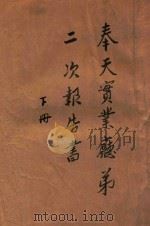 奉天實業廳第
二次報告書
下冊